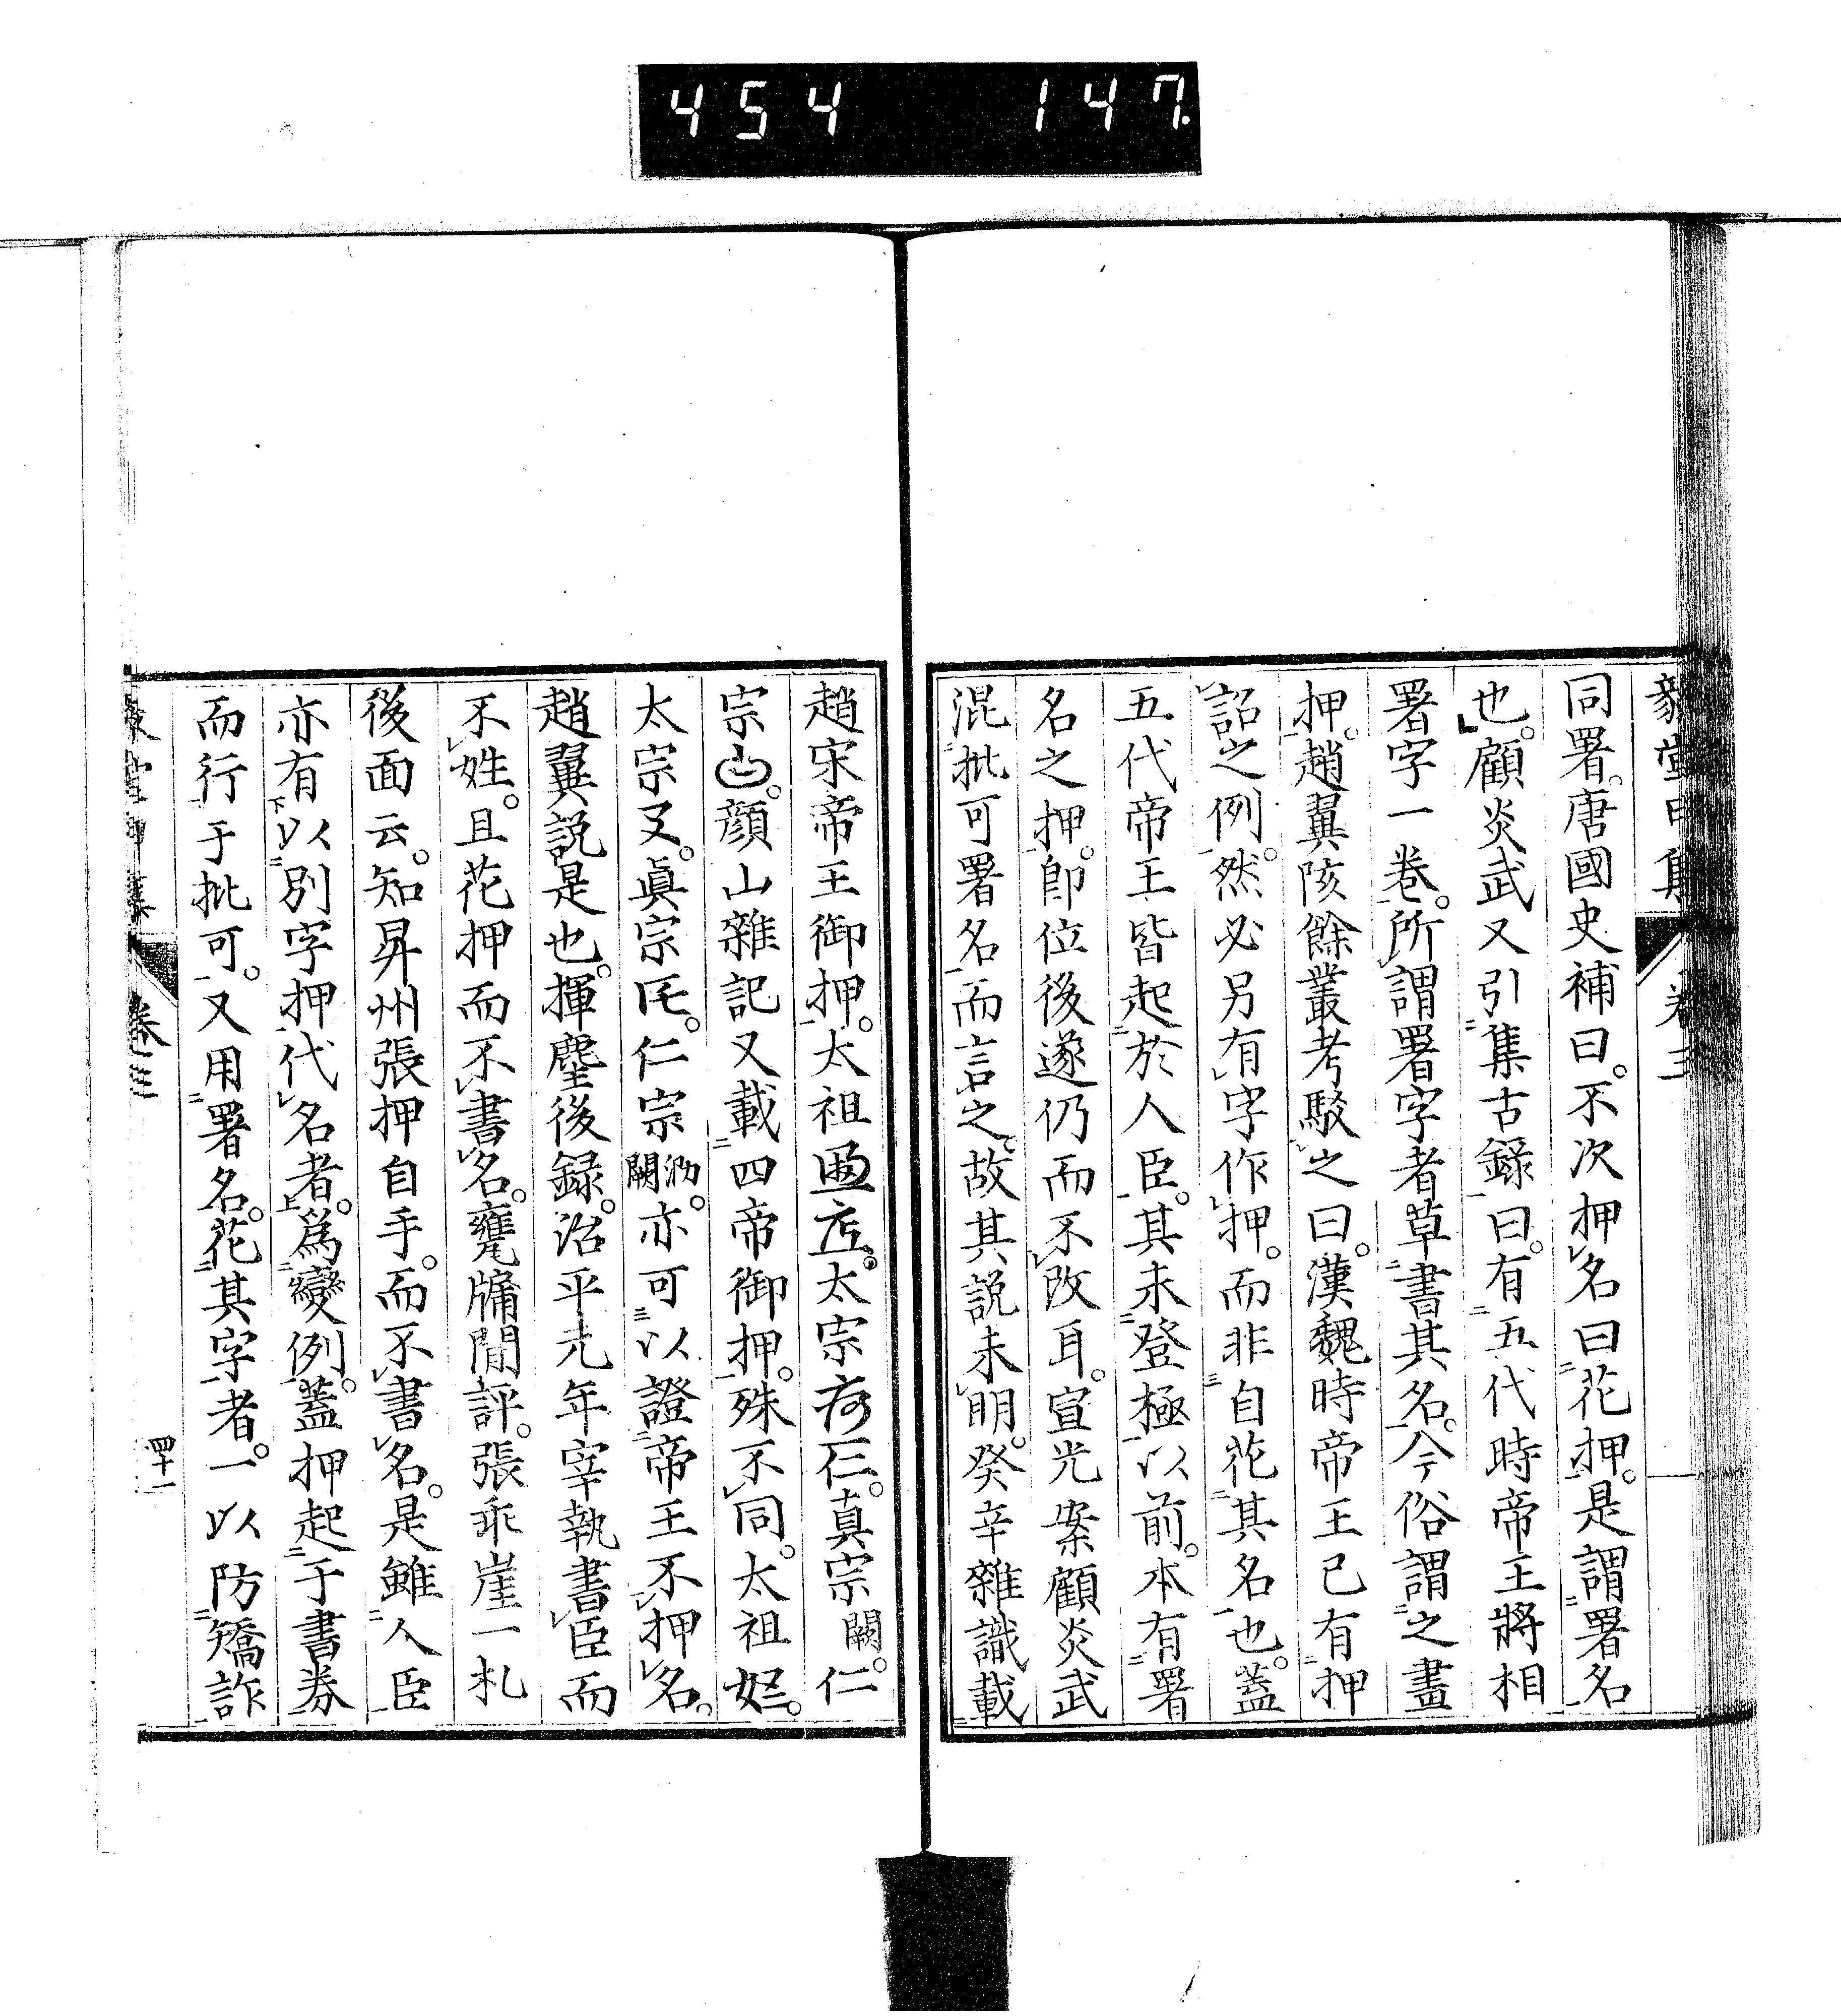 454 147.
毅堂 集 卷三
同署。唐國史補曰。不次押名曰花押。是謂署名
也。顧炎武又引集古錄曰。有五代時帝王將相
署字一卷。所謂署字者草書其名。今俗謂之畫
押。趙翼陔餘叢考駁之曰。漢魏時帝王已有押
詔之例。然必另有字作押。而非自花其名也。蓋
五代帝王皆起於人臣。其未登極以前。本有署
名之押。卽位後遂仍而不改耳。宣光案顧炎武
混批可署名而言之。故其說未明。癸辛雜識載
趙宋帝王御押。太祖 太宗 真宗闕。仁
宗 。顏山雜記又載四帝御押。殊不同。太祖 。
太宗 。眞宗 。仁宗泐闕。亦可以證帝王不押名。
趙翼說是也。揮麈後錄。治平元年宰執書臣而
不姓。且花押而不書名。甕牖閒評。張乖崖一札
後面云。知昇州張押自手。而不書名。是雖人臣
亦有以別字押代名者。爲變例。蓋押起于書券
而行于批可。又用署名。花其字者。一以防矯詐
堂 集 卷三 四十一